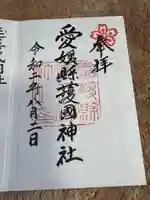 奉拝
愛媛縣護國神社
令和二年八月二日